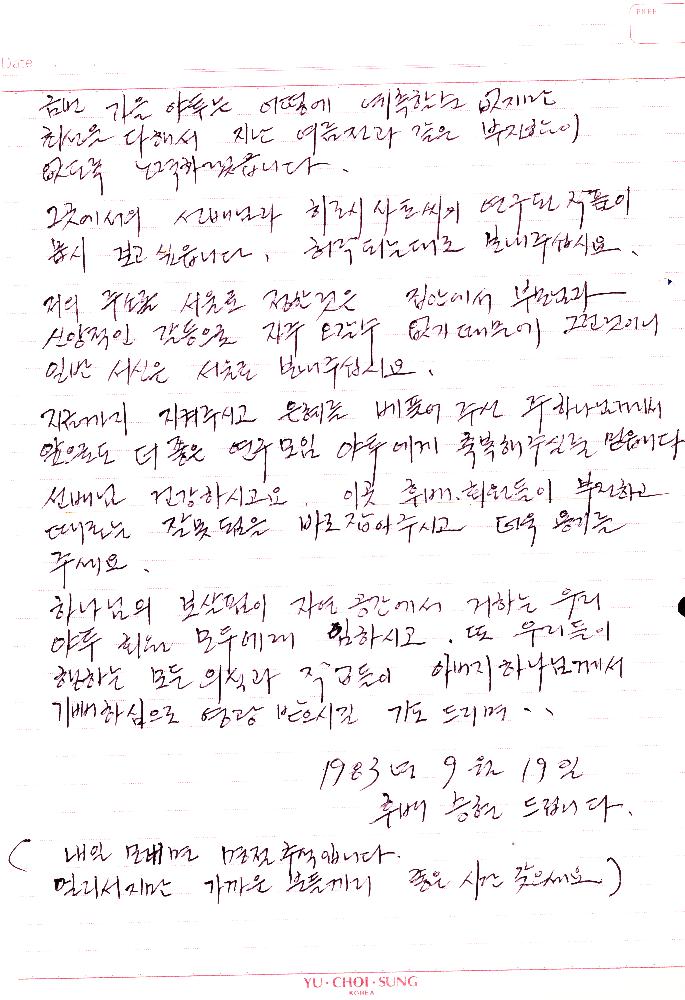 FREE
Date
금번 가을 야투는 어떻게 예측할순 없지만
최선을 다해서 지난 여름전과 같은 부진함이
없도록 노력하겠읍니다.
그곳에서의 선배님과 히로시 사또씨의 연구된 작품이
몹시 보고 싶읍니다. 허락되는대로 보내주십시요.
저의 주소로 서울로 정한것은 집안에서 부모님과
신앙적인 갈등으로 자주 오갈수 없기 때문에 그런것이니
일반 서신은 서울로 보내주십시요.
지금까지 지켜주시고 은혜를 베풀어 주신 주 하나님께서
앞으로도 더 좋은 연구모임 야투에게 축복해주실줄 믿읍니다
선배님 건강하시고요. 이곳 후배.회원들이 부진하고
때로는 잘못됨을 바로잡아주시고 더욱 용기를
주세요.
하나님의 보살핌이 자연 공간에서 거하는 우리
야투 회원 모두에게 임하시고. 또 우리들이
행하는 모든 의식과 작품들이 아버지 하나님께서
기뻐하심으로 영광 받으시길 기도 드리며..
1983년 9월 19일
후배 승현 드립니다.
( 내일 모레면 명절 추석입니다.
멀리서지만 가까운 분들끼리 좋은 시간 갖으세요.)
YU·CHOI·SUNG
KOREA